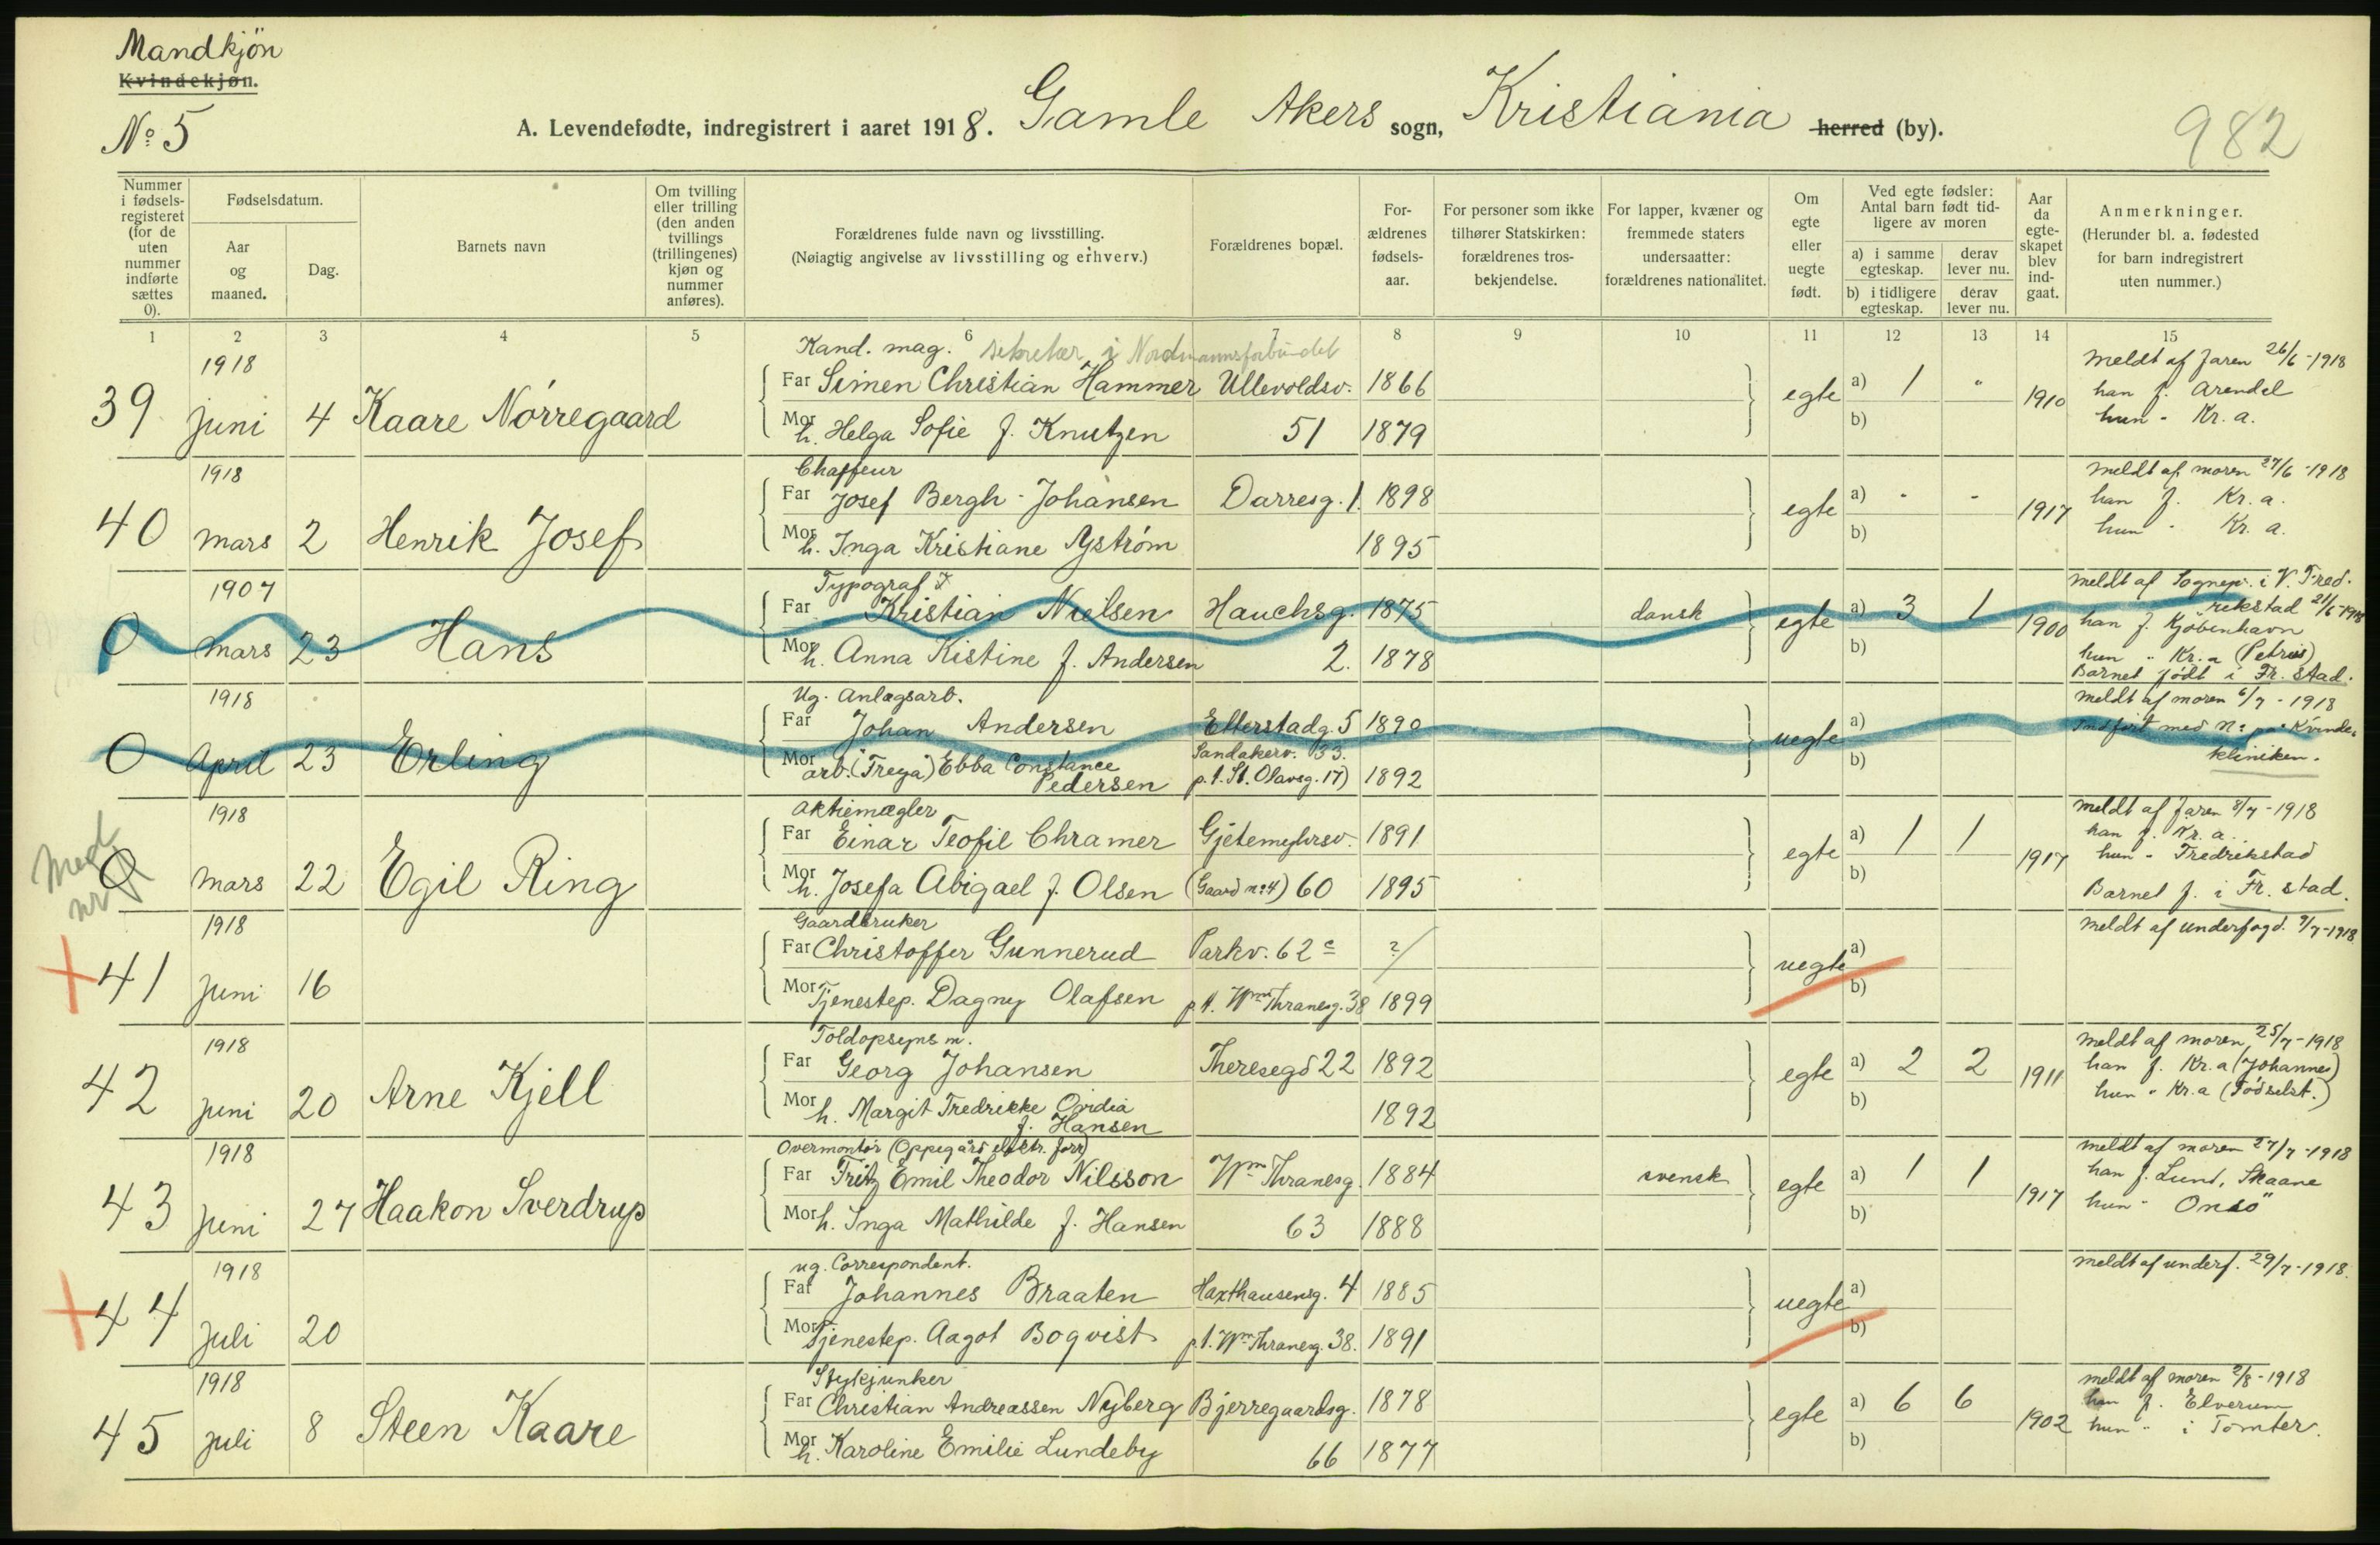 Mandkjön
Kvindekjøn.
No 5
A. Levendefødte, indregistrert i aaret 1918. Gamle Akers sogn, Kristiania herred (by).
982
Nummer i fødselsregisteret (for de uten nummer indførte sættes 0).
Fødselsdatum.
Aar og maaned.
Dag.
Barnets navn
Om tvilling eller trilling (den anden tvillings (trillingenes) kjøn og nummer anføres).
Forældrenes fulde navn og livsstilling.
(Nøiagtig angivelse av livsstilling og erhverv.)
Forældrenes bopæl.
Forældrenes fødselsaar.
For personer som ikke tilhører Statskirken: forældrenes trosbekjendelse.
For lapper, kvæner og fremmede staters undersaatter: forældrenes nationalitet.
Om egte eller uegte født.
Ved egte fødsler: Antal barn født tidligere av moren
a) i samme egteskap. derav lever nu.
b) i tidligere egteskap. derav lever nu.
Aar da egteskapet blev indgaat.
Anmerkninger.
(Herunder bl. a. fødested for barn indregistrert uten nummer.)
1 2 3 4 5 6 7 8 9 10 11 12 13 14 15
1918 Kand. mag. sekretær i Nordmannsforbundet meldt af faren 26/6-1918
39 juni 4 Kaare Nórregaard Far Simen Christian Hammer Ullevoldsv. 1866 egte a) 1 " 1910 han f. Arendal
Mor h. Helga Sofie f. Knutzen 51 1879 b) hun - Kr. a.
1918 Chaffeur meldt af moren 27/6-1918
40 mars 2 Henrik Josef Far Josef Bergh-Johansen Darresg. 1. 1898 egte a) - - 1917 han f. Kr. a.
Mor h. Inga Kristiane Nyström 1895 b) hun - Kr. a.
1907 Typograf meldt af Sognepr. i V. Fredrikstad 21/6-1918
0 mars 23 Hans Far Kristian Nielsen Hauchsg. 1875 dansk egte a) 3 1 1900 han f. Kjöbenhavn
Mor h. Anna Kistine f. Andersen 2. 1878 b) hun " Kr. a (Petrus)
Barnet födt i Fr. stad.
1918 Ug. Anlægsarb. meldt af moren 6/7-1918
0 April 23 Erling Far Johan Andersen Etterstadg. 5 1890 uegte a) Indfört med No på Kvindekliniken.
Mor arb. (Freya) Ebba Constance Pedersen Sandakerv. 33. p.t. St. Olavsg. 17) 1892 b)
1918 Aktiemægler meldt af faren 8/7-1918
Med nr
0 mars 22 Egil Ring Far Einar Teofil Chramer Gjetemyhrsv. 1891 egte a) 1 1 1917 han f. Kr. a.
Mor h. Josefa Abigael f. Olsen (Gaard no 4) 60 1895 b) hun - Fredrikstad
Barnet f. i Fr. stad.
1918 Gaardbruker meldt af underfogd. 9/7-1918
41 juni 16 Far Christoffer Gunnerud Parkv. 62 c ? uegte a)
Mor Tjenestep. Dagny Olafsen p.t. Wm Thranesg. 38 1899 b)
1918 Toldopsyns m. meldt af moren 25/7-1918
42 juni 20 Arne Kjell Far Georg Johansen Theresegd 22 1892 egte a) 2 2 1911 han f. Kr. a (Johannes)
Mor h. Margit Fredrikke Ovidia f. Hansen 1892 b) hun " Kr. a (Födselst.)
1918 Overmontör (Oppegårds elektr. forr) meldt af moren 27/7-1918
43 juni 27 Haakon Sverdrup Far Fritz Emil Theodor Nilsson Wm Thranesg. 1884 svensk egte a) 1 1 1917 han f. Lund, Skaane
Mor h. Inga Mathilde f. Hansen 63 1888 b) hun " Onsö
1918 ug. Correspondent. meldt af underf. 29/7-1918.
44 juli 20 Far Johannes Braaten Haxthausensg. 4 1885 uegte a)
Mor Tjenestep. Aagot Boqvist p.t. Wm Thranesg. 38. 1891 b)
1918 Stykjunker meldt af moren 2/8-1918
45 juli 8 Steen Kaare Far Christian Andreassen Nyberg Bjerregaardsg. 1878 egte a) 6 6 1902 han f. Elverum
Mor h. Karoline Emilie Lundeby 66 1877 b) hun " i Tomter.